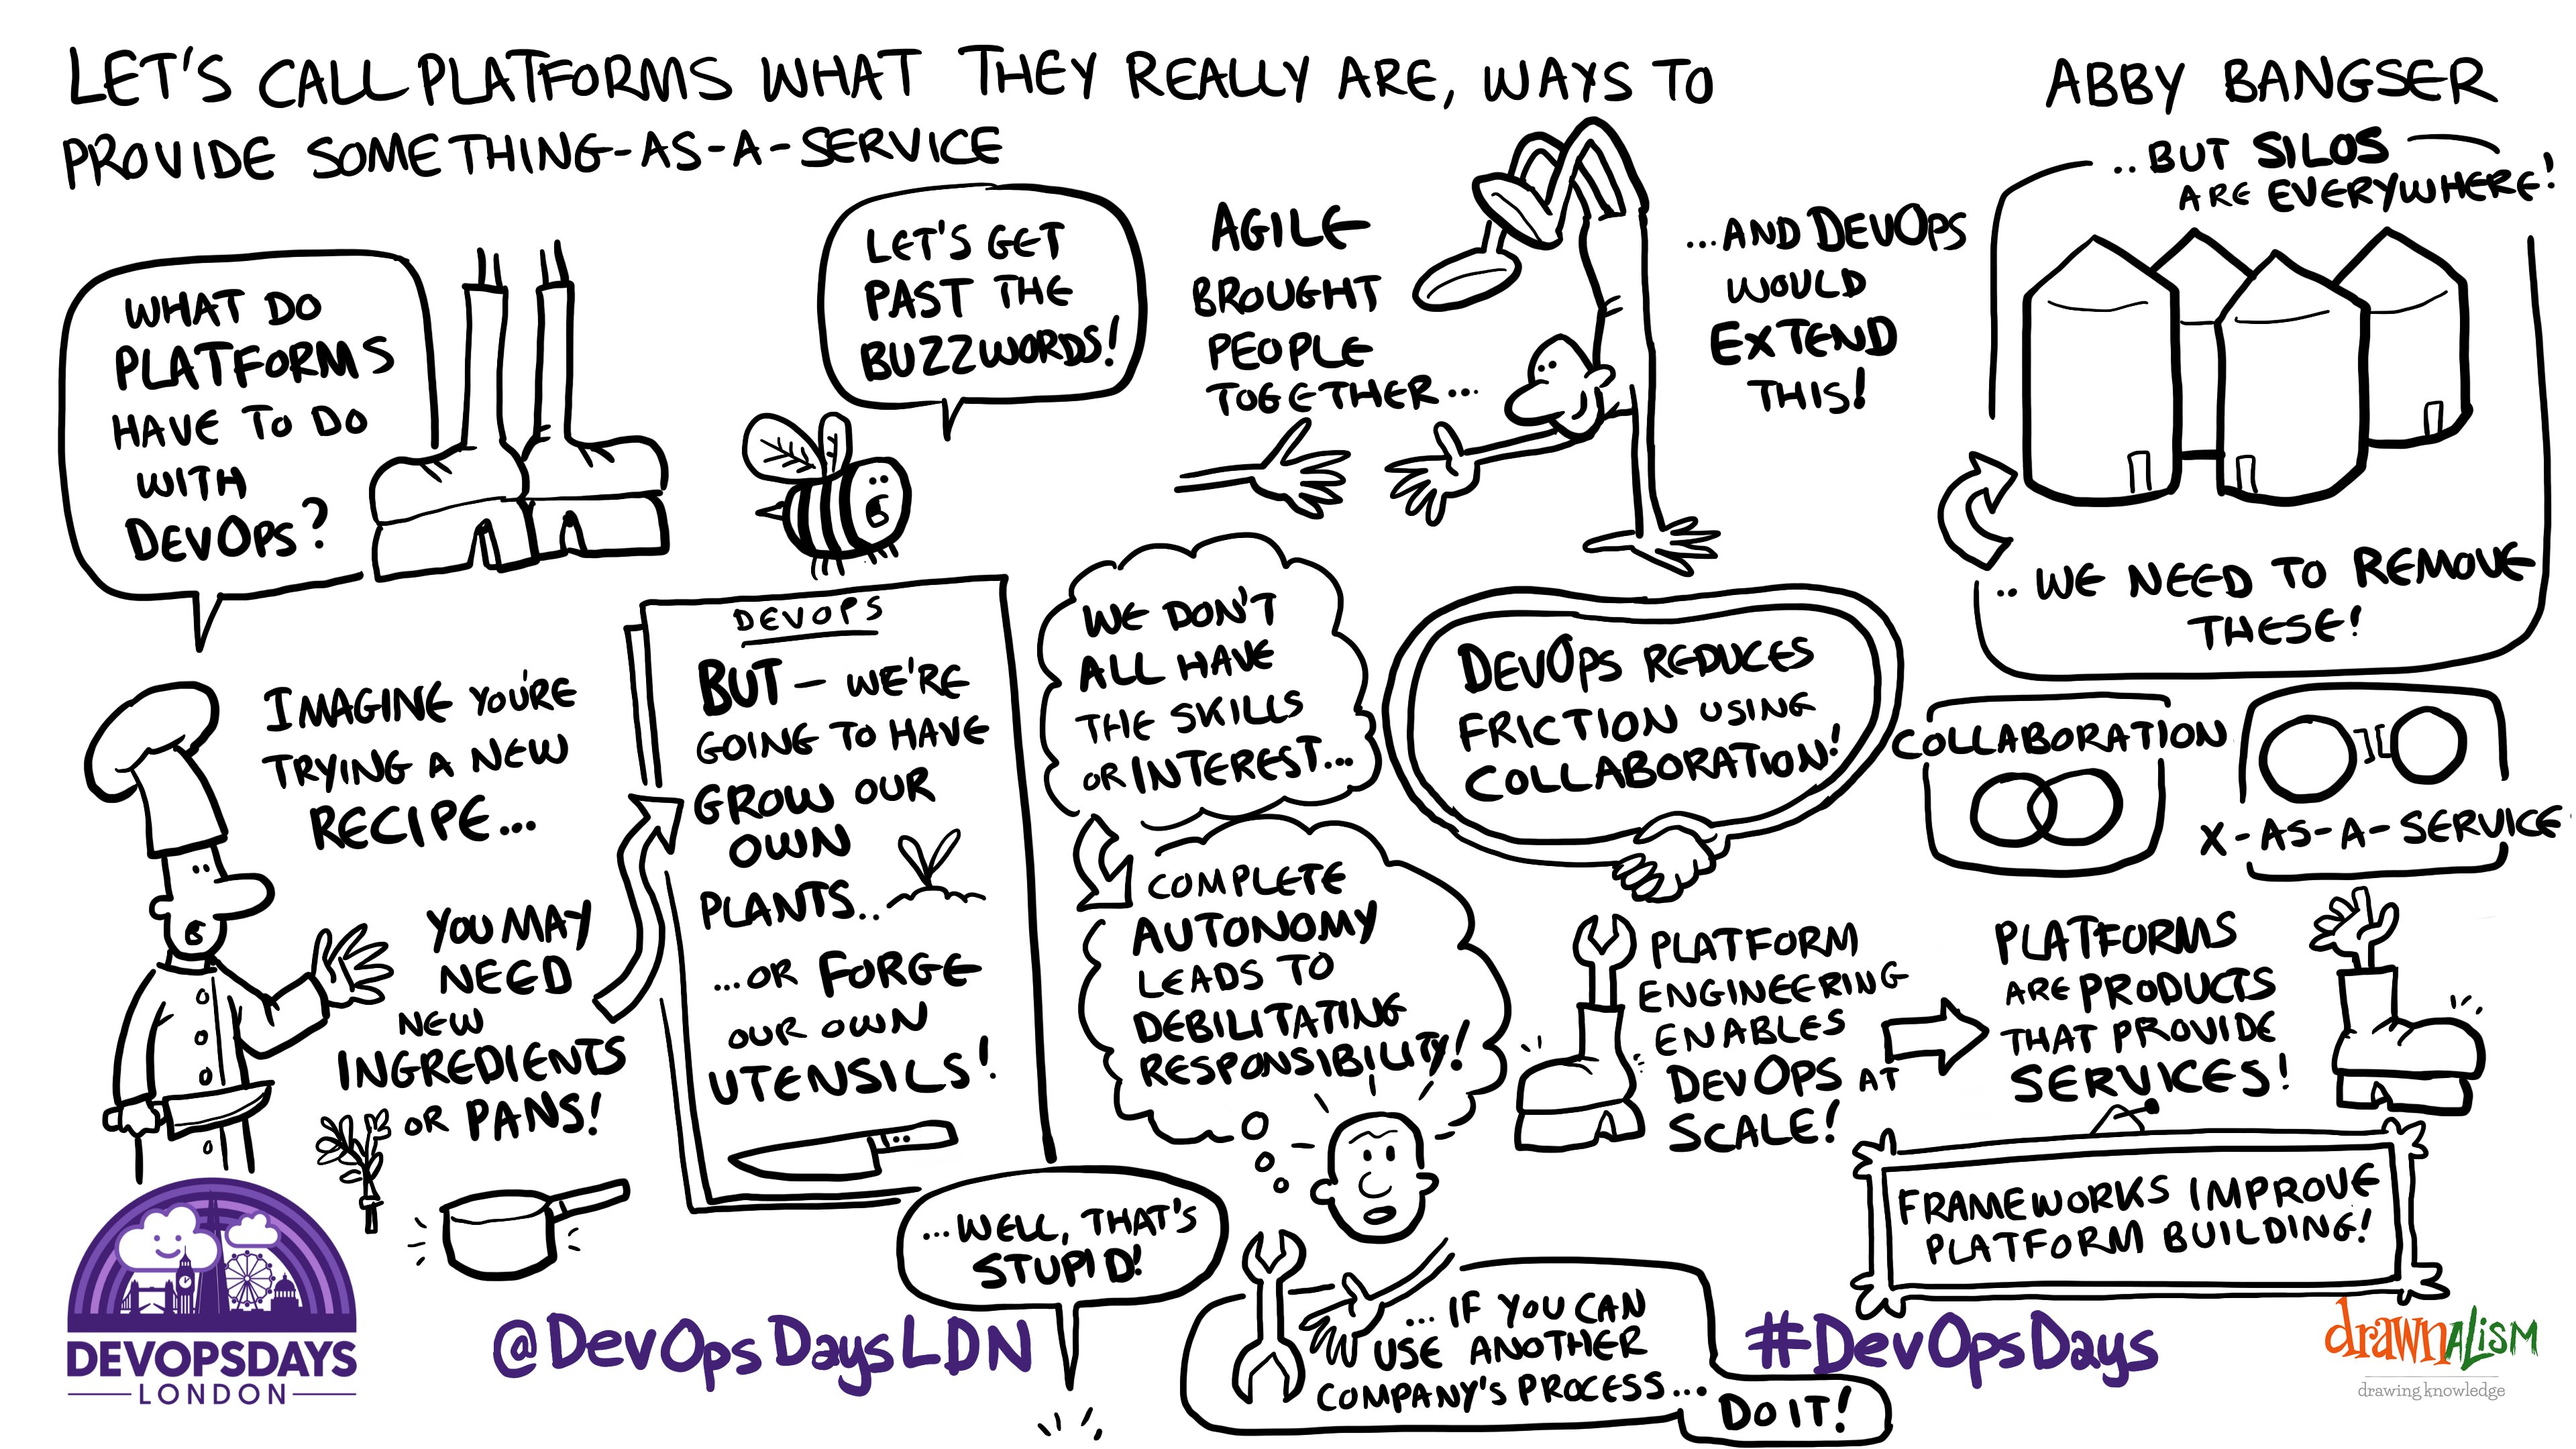 LET'S CALL PLATFORMS WHAT THEY REALLY ARE, WAYS TO
PROVIDE SOMETHING-AS-A-SERVICE
ABBY BANGSER
WHAT DO
PLATFORMS
HAVE TO DO
WITH
DEVOPS?
LET'S GET
PAST THE
BUZZWORDS!
AGILE
BROUGHT
PEOPLE
TOGETHER...
...AND DEVOPS
WOULD
EXTEND
THIS!
..BUT SILOS
ARE EVERYWHERE!
..WE NEED TO REMOVE
THESE!
IMAGINE YOU'RE
TRYING A NEW
RECIPE...
YOU MAY
NEED
NEW
INGREDIENTS
OR PANS!
DEVOPS
BUT - WE'RE
GOING TO HAVE
GROW OUR
OWN
PLANTS..
...OR FORGE
OUR OWN
UTENSILS!
...WELL, THAT'S
STUPID!
WE DON'T
ALL HAVE
THE SKILLS
OR INTEREST...
COMPLETE
AUTONOMY
LEADS TO
DEBILITATING
RESPONSIBILITY!
...IF YOU CAN
USE ANOTHER
COMPANY'S PROCESS...
DO IT!
DEVOPS REDUCES
FRICTION USING
COLLABORATION!
COLLABORATION
X-AS-A-SERVICE
PLATFORM
ENGINEERING
ENABLES
DEVOPS AT
SCALE!
PLATFORMS
ARE PRODUCTS
THAT PROVIDE
SERVICES!
FRAMEWORKS IMPROVE
PLATFORM BUILDING!
DEVOPSDAYS
LONDON
@DevOpsDaysLDN
#DevOpsDays
drawnALISM
drawing knowledge